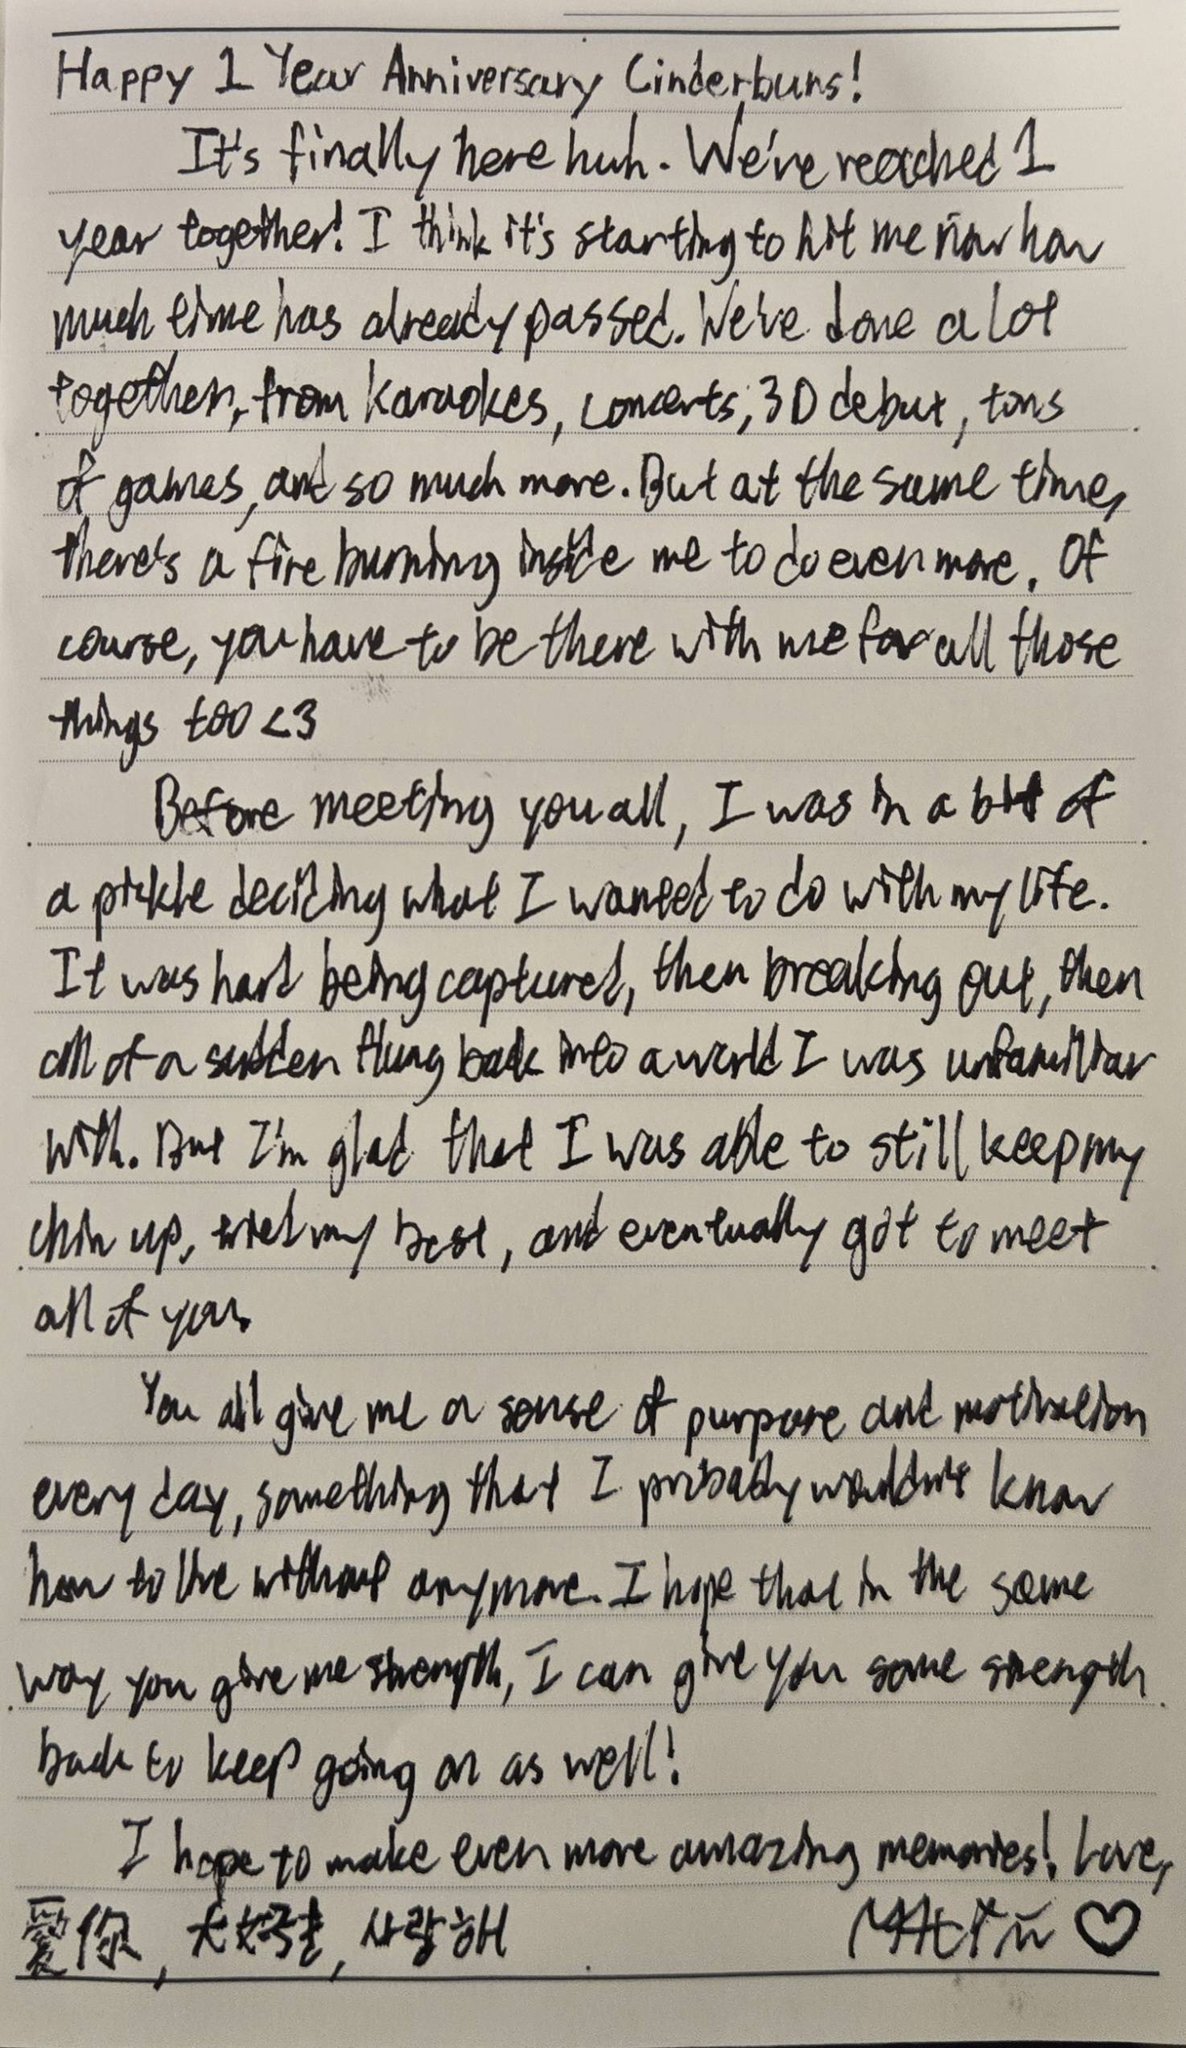 Happy 1 Year Anniversary Cinderbuns!
It's finally here huh. We've reached 1
year together! I think it's starting to hit me now how
much time has already passed. We've done a lot
together, from karaokes, concerts, 3D debut, tons
of games, and so much more. But at the same time,
there's a fire burning inside me to do even more. Of
course, you have to be there with me for all those
things too <3
Before meeting you all, I was in a bit of
a pickle deciding what I wanted to do with my life.
It was hard being captured, then breaking out, then
all of a sudden flung back into a world I was unfamiliar
with. But I'm glad that I was able to still keep my
chin up, tried my best, and eventually got to meet
all of you.
You all give me a sense of purpose and motivation
every day, something that I probably wouldn't know
how to live without anymore. I hope that in the same
way you give me strength, I can give you some strength
back to keep going on as well!
I hope to make even more amazing memories! Love,
愛你, 大好き, 사랑해